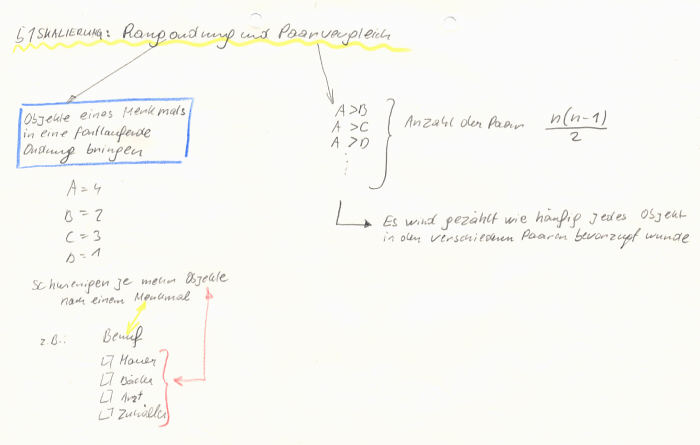 5.1 SKALIERUNG: Rangordnung und Paarvergleich
Objekte eines Merkmals
in eine fortlaufende
Ordnung bringen
A = 4
B = 2
C = 3
D = 1
Schwieriger je mehr Objekte
nach einem Merkmal
z.B.: Beruf
Maurer
Bäcker
Arzt
A > B
A > C
A > D
Anzahl der Paare n(n-1)/2
Es wird gezählt wie häufig jedes Objekt
in den verschiedenen Paaren bevorzugt wurde